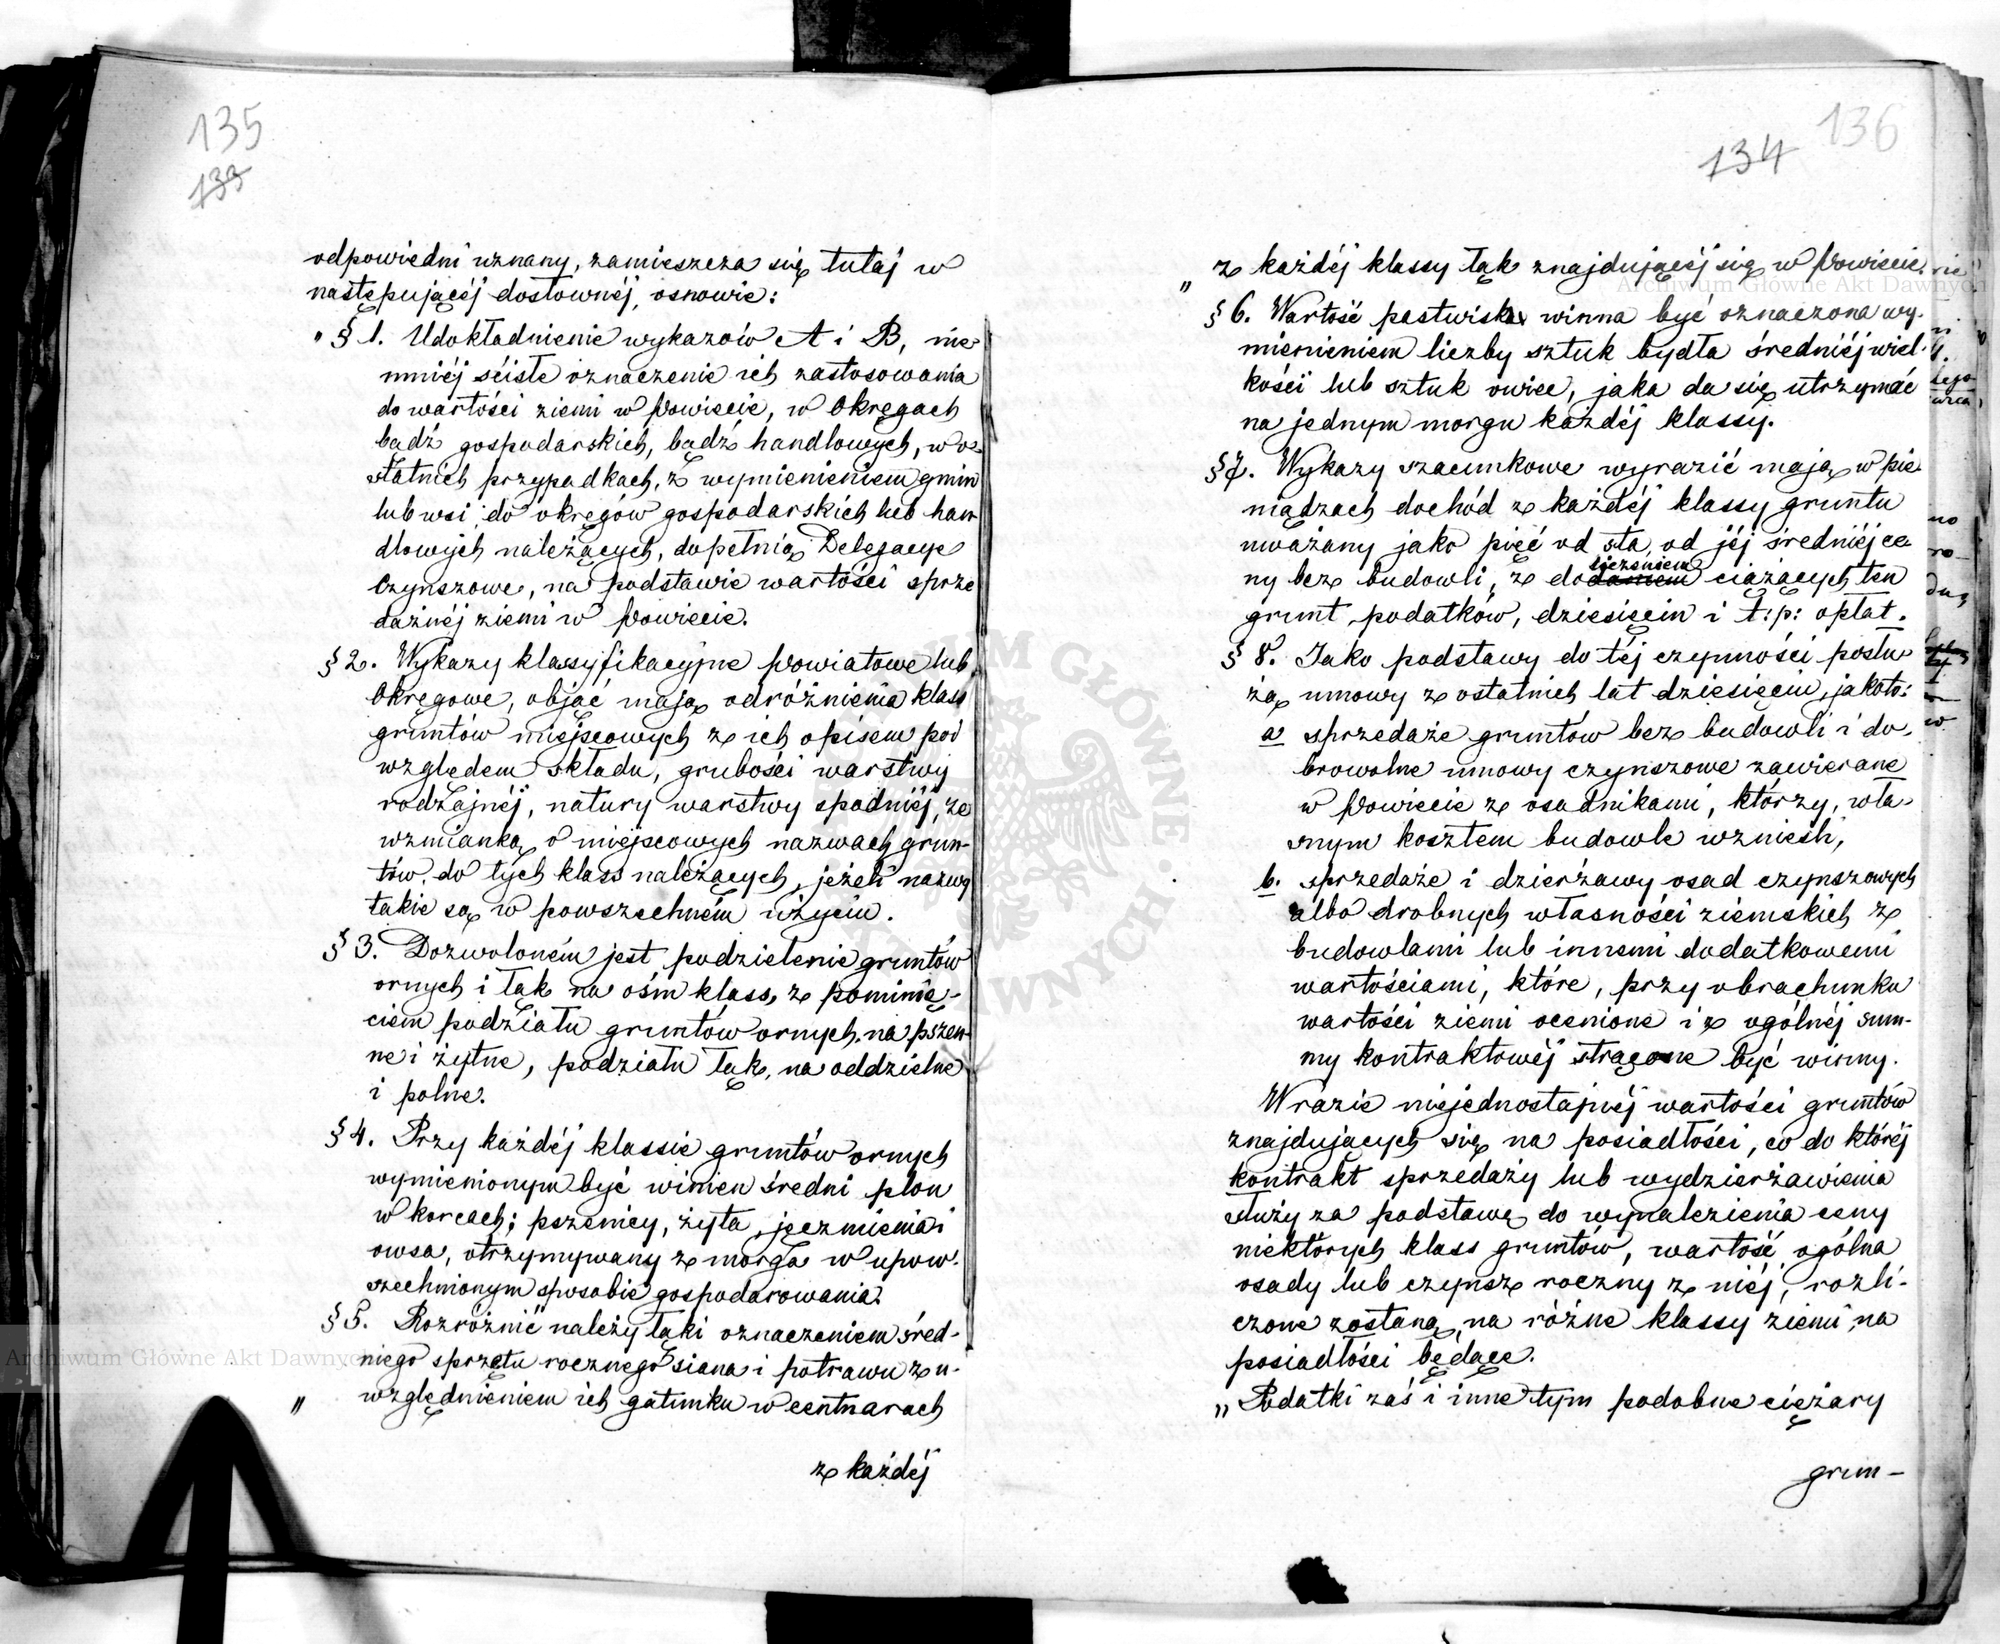 135
133
odpowiedni uznany, zamieszcza się tutaj w
następującéj dosłownéj osnowie:
„ § 1. Udokładnienie wykazów A i B, nie-
mniéj ściśłe oznaczenie ich zastosowania
do wartości ziemi w Powiecie, w Okręgach
bądź gospodarskich, bądź handlowych, w o-
statnich przypadkach, z wymienieniem gmin
lub wsi do okręgów gospodarskich lub han
dlowych należących, dopełnią Delegacye
Czynszowe, na podstawie wartości sprze
dażnéj ziemi w Powiecie.
§ 2. Wykazy klassyfikacyjne Powiatowe lub
Okręgowe, objąć mają odróżnienia klass
gruntów miejscowych z ich opisem pod
względem składu, grubości warstwy
rodzajnéj, natury warstwy spodniéj, ze
wzmianką o miejscowych nazwach grun-
tów do tych klass należących, jeżeli nazwy
takie są w powszechném użyciu.
§ 3. Dozwoloném jest podzielenie gruntów
ornych i łąk na ośm klass, z pominię-
ciem podziału gruntów ornych na pszen-
ne i żytne, podziału łąk, na oddzielne
i polne.
§ 4. Przy każdéj klassie gruntów ornych
wymienionym być winien średni plon
w korcach; pszenicy, żyta, jęczmienia i
owsa, otrzymywany z morga w upow-
szechnionym sposobie gospodarowania.
§ 5. Rozróżnić należy łąki oznaczeniem śred-
niego sprzętu rocznego siana i potrawu z u-
„ względnieniem ich gatunku w centnarach
z każdéj
136
134
z każdéj klassy łąk znajdującéj się w Powiecie.
„ § 6. Wartość pastwiska winna być oznaczona wy-
mienieniem liczby sztuk bydła średniéj wiel-
kości lub sztuk owiec, jaka da się utrzymać
na jednym morgu każdéj klassy.
§ 7. Wykazy szacunkowe wyrazić mają w pie
niądzach dochód z każdéj klassy gruntu
uważany jako pięć od sta, od jéj średniéj ce-
liczeniem
ny bez budowli, z dodaniem ciążących ten
grunt podatków, dziesięcin i t: p: opłat.
§ 8. Jako podstawy do téj czynności posłu-
żą umowy z ostatnich lat dziesięciu, jakoto:
a sprzedaże gruntów bez budowli i do-
browolne umowy czynszowe zawierane
w Powiecie z osadnikami, którzy, wła-
snym kosztem budowle wznieśli,
b. sprzedaże i dzierżawy osad czynszowych
albo drobnych własności ziemskich z
budowlami lub innemi dodatkowemi
wartościami, które, przy obrachunku
wartości ziemi ocenione i z ogólnéj sum-
my kontraktowéj strącone być winny.
W razie niejednostajnéj wartości gruntów
znajdujących się na posiadłości, co do któréj
kontrakt sprzedaży lub wydzierżawienia
służy za podstawę do wynalezienia ceny
niektórych klass gruntów, wartość ogólna
osady lub czynsz roczny z niéj, rozli-
czone zostaną na różne klassy ziemi, na
posiadłości będące.
„ Podatki zaś i inne tym podobne ciężary
grun-
Archiwum Główne Akt Dawnych
Archiwum Główne Akt Dawnych